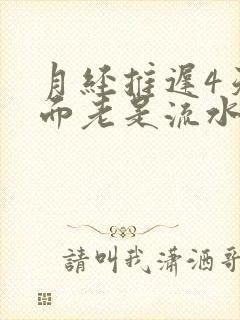 月经推遲4天
而老是流水
請叫我瀟洒哥